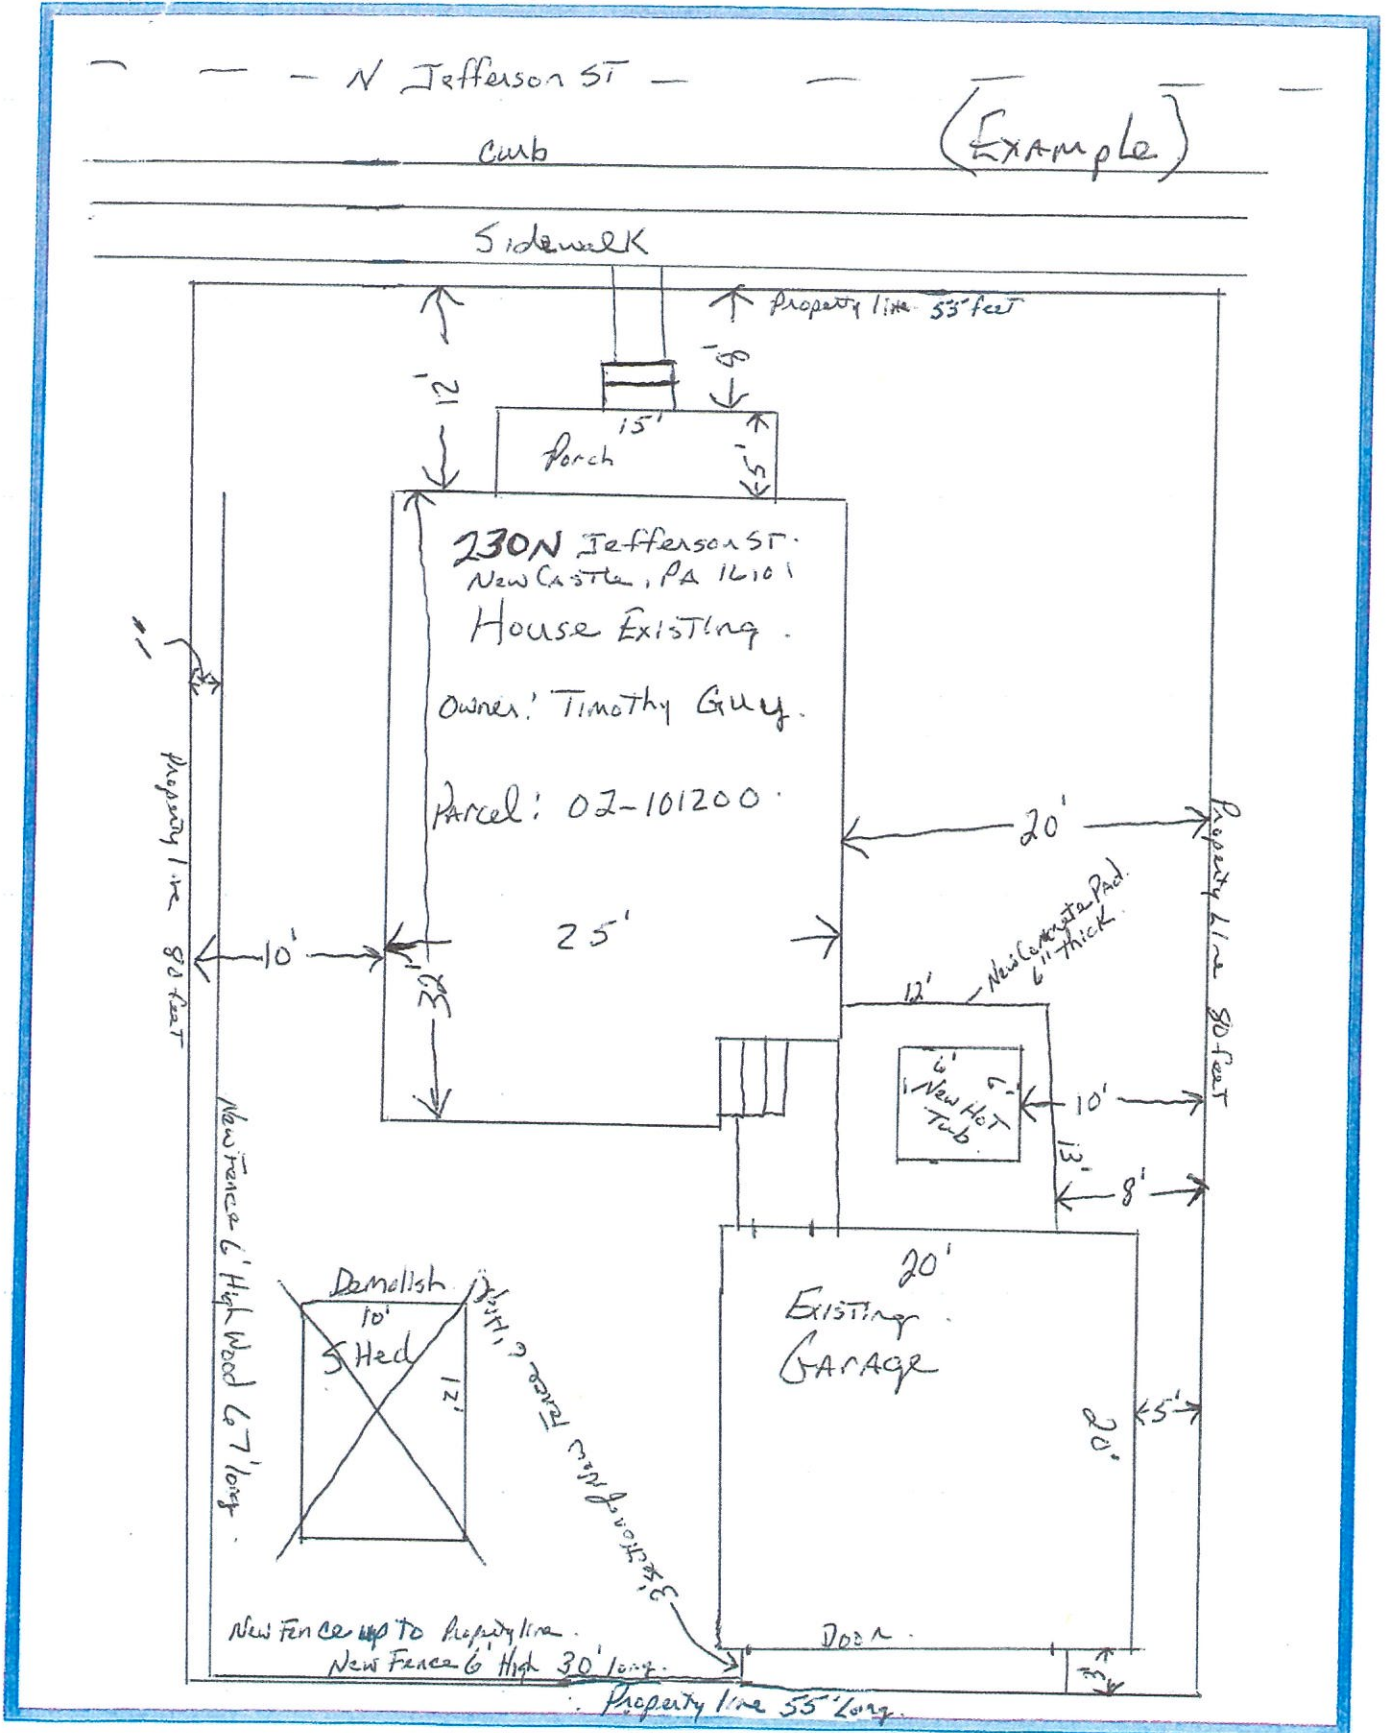 N Jefferson ST
(Example)
Curb
Sidewalk
Property line 55 feet
12'
8'
15'
Porch
5'
230N Jefferson ST.
New Castle, PA 16101
House Existing.
Owner: Timothy Guy.
Parcel: 02-101200.
1'
Property line 80 feet
20'
Property Line 80 feet
25'
10'
38'
New Concrete Pad.
6" thick.
12'
6'
6'
New Hot
Tub
10'
13'
8'
New Fence 6' High Wood 67' long.
Demolish
10'
Shed
12'
3' section of New Fence 6' High
20'
Existing
Garage
20'
5'
Door
3'
New Fence up to Property line.
New Fence 6' High 30' long.
Property line 55' Long.